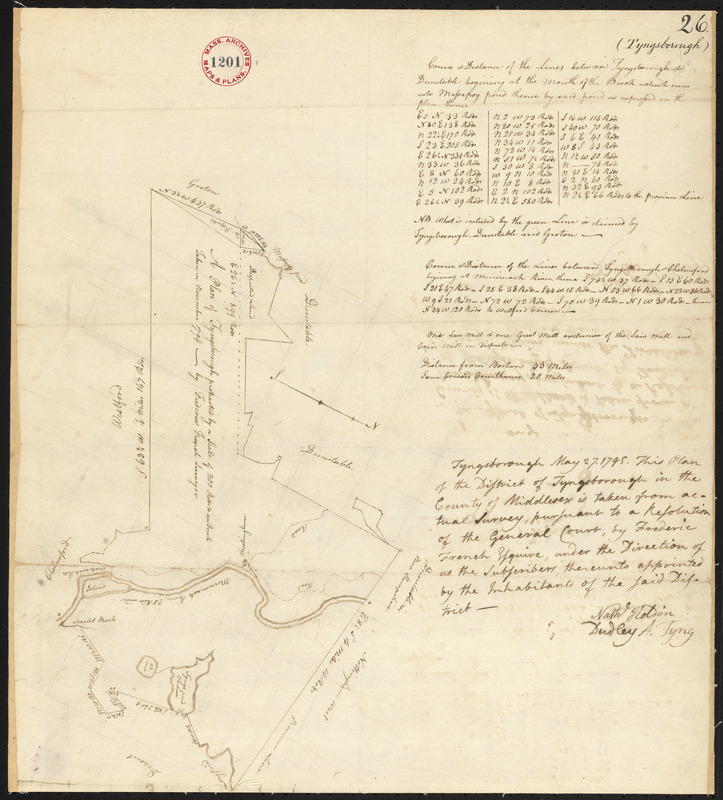 26
(Tyngsborough)
MASS. ARCHIVES
1201
MAPS & PLANS.
Course & Distance of the Lines between Tyngsborough &
Dunstable begining at the Mouth of the Brook which runs
into Massapog pond thence by said pond as expressed on the
plan thence
E 5 N 33 Rods
N 80 E 138 Rods
N 22½ E 170 Rods
S 23 E 205 Rods
E 26½ N 334 Rods
N 33 W 36 Rods
E 8 N 60 Rods
N 12 W 24 Rods
E 5 N 102 Rods
E 26½ N 39 Rods
N 2 W 79 Rods
N 20 W 25 Rods
N 25 W 34 Rods
N 34 W 11 Rods
N 72 W 14 Rods
N 51 W 71 Rods
S 30 W 8 Rods
W 9 N 10 Rods
N 10 E 8 Rods
E 2 N 102 Rods
N 2½ E 580 Rods
S 16 W 114 Rods
S 40 W 70 Rods
S 6 E 41 Rods
W 8 S 43 Rods
N 12 W 50 Rods
N — 74 Rods
N 30 E 14 Rods
E 2 N 60 Rods
N 32 E 93 Rods
N 2½ E 66 Rods to the province Line
NB What is included by the green Line is claimed by
Tyngsborough, Dunstable and Groton
Course & Distance of the Lines between Tyngsborough & Chelmsford
begining at Merrimack River thence S 73½ W 37 Rods – S 13 E 60 Rods
S 21 E 67 Rods – S 25 E 38 Rods – S 44 W 15 Rods – N 53 W 66 Rods – N 22 W 86 Rods
W 9 S 21 Rods – N 72 W 72 Rods – S 70 W 39 Rods – N 1 W 30 Rods – thence
N 34 W 120 Rods to Westford Corner
One Saw Mill & one Grist Mill exclusive of the Saw Mill and
Corn Mill in dispute
Distance from Boston 33 Miles
From Concord Courthouse 20 Miles
Tyngsborough May 27. 1795. This Plan
of the District of Tyngsborough in the
County of Middlesex is taken from ac-
tual Survey, pursuant to a Resolution
of the General Court, by Frederic
French Esquire, under the Direction of
us the Subscribers thereunto appointed
by the Inhabitants of the said Dis-
trict —
Nathl Holden
Dudley A. Tyng
Groton
N 34 W 437 Rods
Massapog pond
Disputed Land
E 26½ N 899 Rods
Dunstable
A Plan of Tyngsborough protracted by a Scale of 200 Rods to an Inch
Taken in November 1794 by Frederic French Surveyor
Westford
S 63½ W 4 Miles 147 Rods
S
N
Dunstable
Chelmsford
Island
Merrimack River
Scarlet Brook
Road
Road
Meeting house
Dunstable in New Hampshire
E 8 S 4 Miles
Nottingham West
Province Line
Dracut